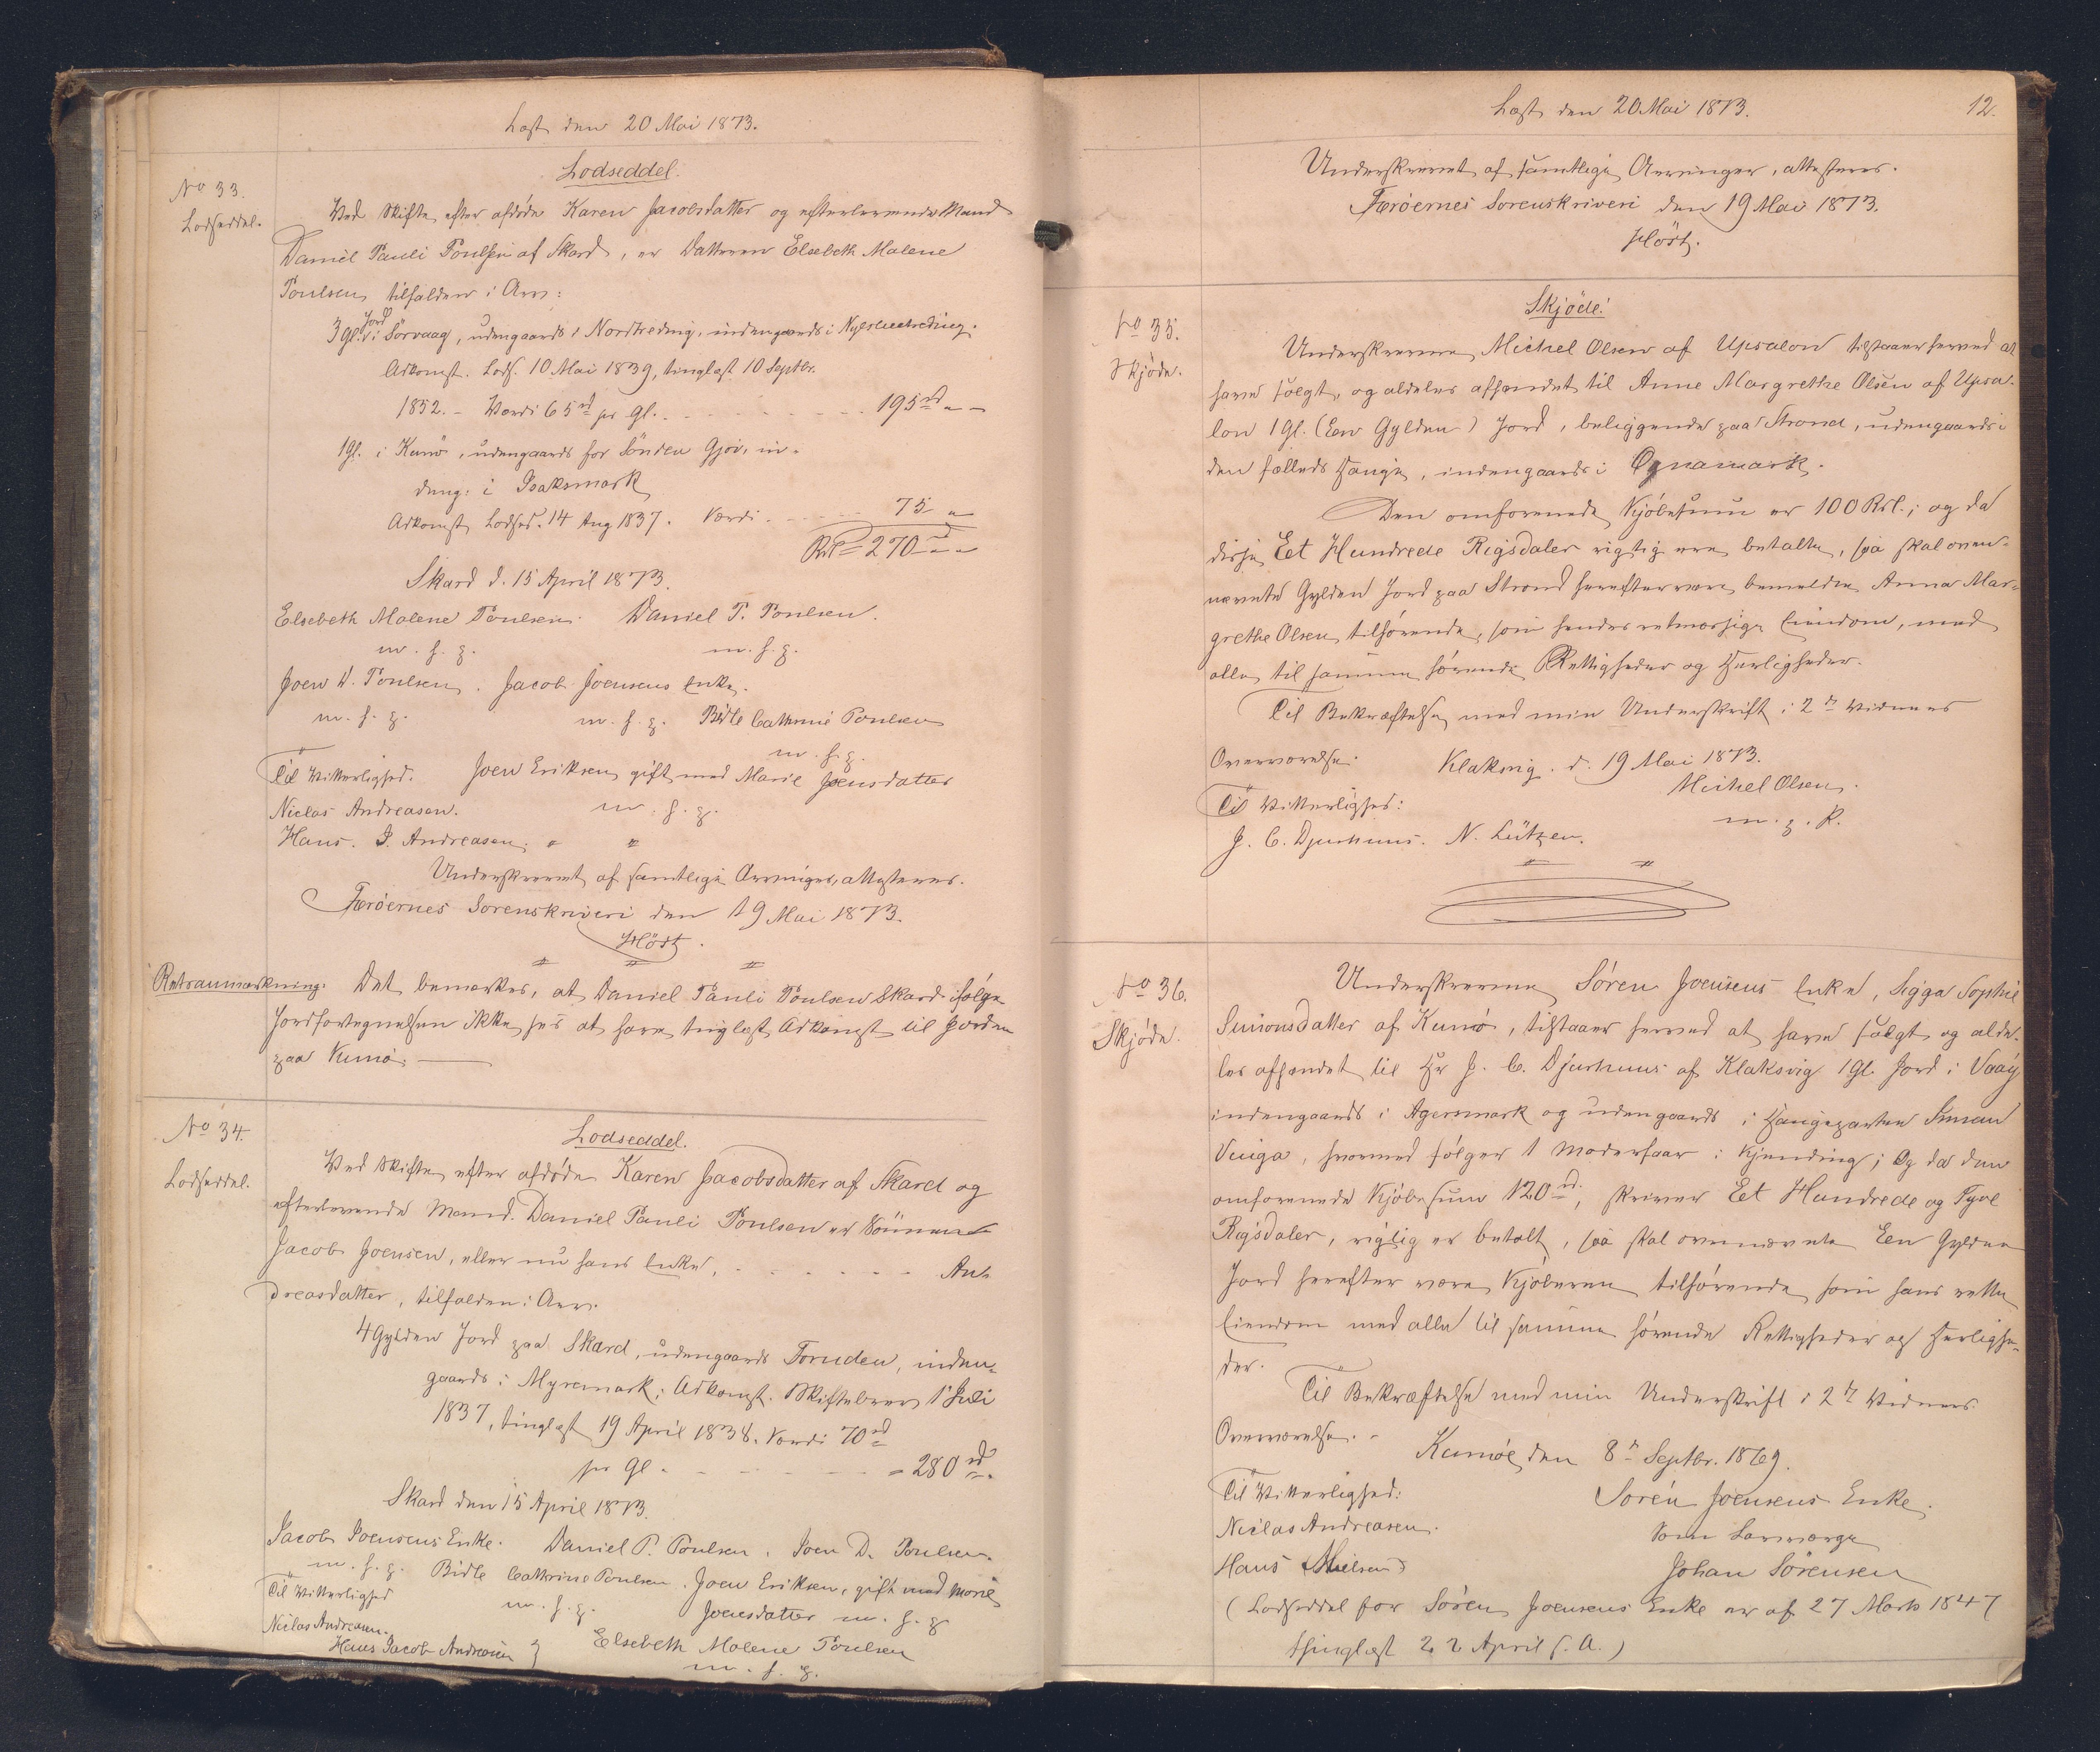 Læst den 20 Mai 1873.
No 33.
Lodseddel.
Lodseddel.
Ved Skifte efter afdøde Karen Jacobsdatter og efterlevende Mand
Daniel Pauli Poulsen af Skard, er Datteren Elsebeth Malene
Poulsen tilfalden i Arv:
3 Gl. Jord i Sørvaag, udengaards i Nordtreding, indengaards i
Adkomst. Lods. 10 Mai 1839, tinglæst 10 Septbr.
1852. - Værdi 65 rd pr Gl. - - - - 195 rd " -
1 Gl. i Kunö, udengaards for Sönden Gjov, in-
deng. i Isaksmark
Adkomst Lodsed. 14 Aug 1837. Værdi - - - 75 - "
Rd = 270 rd " "
Skard d. 15 April 1873.
Elsebeth Malene Poulsen. Daniel P. Poulsen.
m. f. P. m. f. P.
Joen D. Poulsen. Jacob Joensens Enke.
m. f. P. m. f. P. Birte Cathrine Poulsen
m. f. P.
Til Vitterlighed. Joen Eriksen gift med Marie Joensdatter
Niclas Andreasen. m. f. P.
Hans. J. Andreasen. " "
Underskrevet af samtlige Arvinger, attesteres.
Færöernes Sorenskriveri den 19 Mai 1873.
Höst.
Retsanmærkning. Det bemærkes, at Daniel Pauli Poulsen Skard ifølge
Jordfortegnelsen ikke sees at have tinglæst Adkomst til Jorden
paa Kunø.
No 34.
Lodseddel.
Lodseddel.
Ved Skifte efter afdøde Karen Jacobsdatter af Skard og
efterlevende Mand. Daniel Pauli Poulsen er Sönnen
Jacob Joensen, eller nu hans Enke, - - - - - - An-
dreasdatter, tilfalden i Arv.
4 Gylden Jord paa Skard, udengaards Foruden, inden-
gaards i Myremark; Adkomst. Skiftebrev 1 Juli
1837, tinglæst 19 April 1838. Værdi 70 rd
pr Gl. - - - - - - = 280 rd.
Skard den 15 April 1873.
Jacob Joensens Enke. Daniel P. Poulsen. Joen D. Poulsen.
m. f. P. Birte Cathrine Poulsen. Joen Eriksen, gift med Marie
Til Vitterlighed m. f. P. Joensdatter m. f. P
Niclas Andreasen.
Hans Jacob Andreasen } Elsebeth Malene Poulsen
m. f. P.
Læst den 20 Mai 1873. 12.
Underskrevet af samtlige Arvinger, attesteres.
Færöernes Sorenskriveri den 19 Mai 1873.
Höst.
No 35.
Skjøde.
Skjöde!
Underskrevne Michel Olsen af Upsalon tilstaaer herved at
have solgt, og aldeles afhændet til Anne Margrethe Olsen af Upsa-
lon 1 Gl. (Een Gylden) Jord, beliggende paa Strond, udengaards i
den fælleds Hauge, indengaards i Ognamark.
Den omforenede Kjöbesum er 100 Rdl.; og da
disse Et Hundrede Rigsdaler rigtig ere betalte, saa skal oven-
nævnte Gylden Jord paa Strond herefter være bemeldte Anna Mar-
grethe Olsen tilhørende, som hendes retmæssige Eiendom, med
alle til samme hørende Rettigheder og Herligheder.
Til Bekræftelse med min Underskrift i 2 de Vidners
Overværelse. Klaksvig. d. 19 Mai 1873.
Michel Olsen.
Til Vitterlighed: m. P. P.
J. C. Djurhuus. N. Lützen.
No 36.
Skjøde.
Underskrevne Sören Joensens Enke, Sigga Sophie
Simonsdatter af Kunø, tilstaaer herved at have solgt og alde-
les afhændet til Hr J. C. Djurhuus af Klaksvig 1 Gl. Jord i Vaag
indengaards i Agersmark og udengaards i Haugeparten Innan
Vuiga, hvormed følger 1 Moderfaar i Kjending; Og da den
omforenede Kjöbesum 120 rd, skriver Et Hundrede og Tyve
Rigsdaler, rigtig er betalt, saa skal ovennævnte Een Gylden
Jord herefter være Kjöberen tilhørende som hans rette
Eiendom med alle til samme hørende Rettigheder og Herlighe-
der.
Til Bekræftelse med min Underskrift i 2 de Vidners
Overværelse. - Kunøe den 8 de Septbr. 1869.
Til Vitterlighed: Sorén Joensens Enke.
Niclas Andreasen. Som Lavværge
Hans Nielsen Johan Sörensen
(Lodseddel for Sören Joensens Enke er af 27 Marts 1847
thinglæst 22 April s. A.)